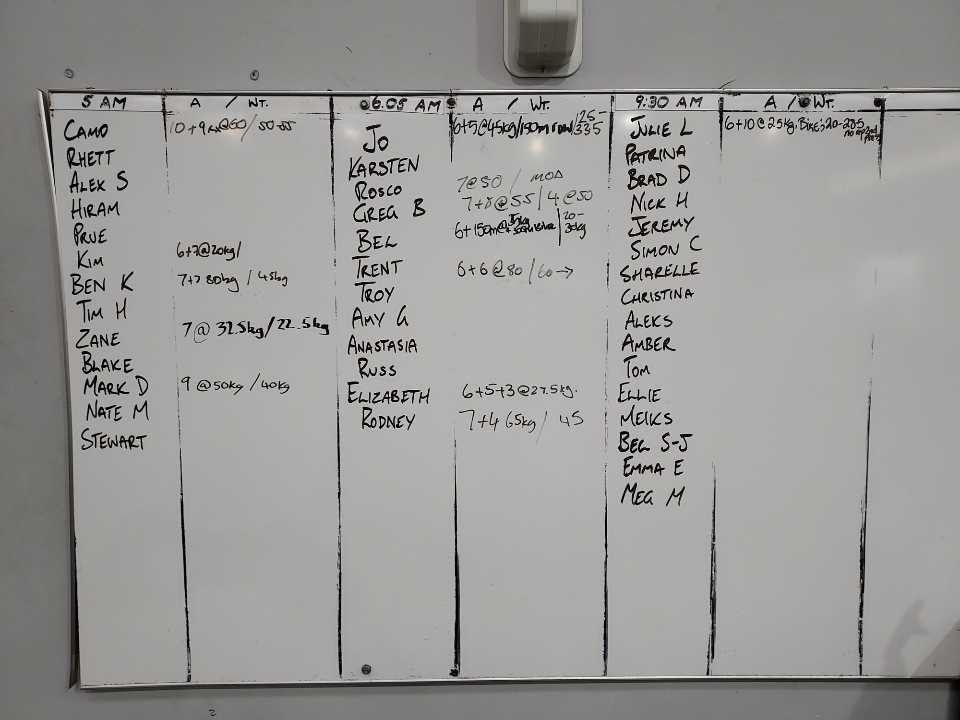 5 AM
A / WT.
CAMO 10+9 @60/50-55
RHETT
ALEX S
HIRAM
PRUE
KIM 6+7@20kg/
BEN K 7+7 80kg / 45kg
TIM H
ZANE 7@ 32.5kg/22.5kg
BLAKE
MARK D 9 @50kg / 40kg
NATE M
STEWART
6.05 AM
A / WT.
JO 6+5@45kg/150m row/25-335
KARSTEN
ROSCO 7@50 / MOD
GREG B 7+8@55/4 @50
BEL 6+150m@ 20-30kg
TRENT 6+6@80/60→
TROY
AMY G
ANASTASIA
RUSS
ELIZABETH 6+5+3@27.5kg.
RODNEY 7+4 65kg/ 45
9:30 AM
A / WT.
JULIE L 6+10@25kg, BIKE; 20-20.5 no rep 2nd
PATRINA
BRAD D
NICK H
JEREMY
SIMON C
SHARELLE
CHRISTINA
ALEKS
AMBER
TOM
ELLIE
MEIKS
BEC S-J
EMMA E
MEG M